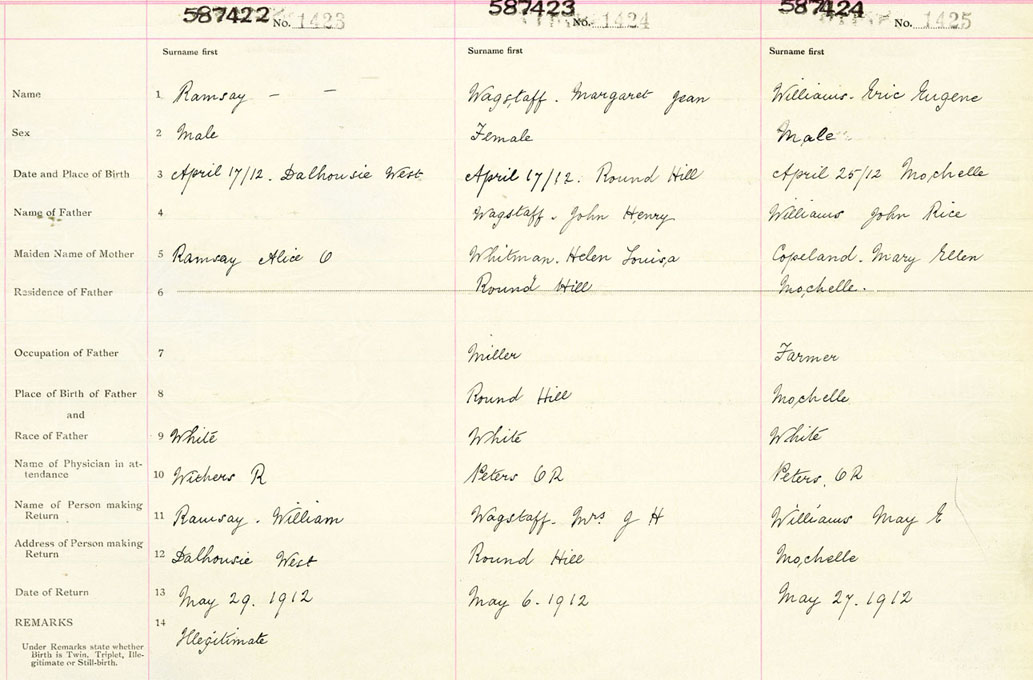 587422 No. 1423 587423 No. 1424 587424 No. 1425
Surname first Surname first Surname first
Name 1 Ramsay — — Wagstaff. Margaret Jean Williams. Eric Eugene
Sex 2 Male Female Male
Date and Place of Birth 3 April 17/12. Dalhousie West April 17/12. Round Hill April 25/12 Mochelle
Name of Father 4 Wagstaff. John Henry Williams John Rice
Maiden Name of Mother 5 Ramsay Alice O Whitman. Helen Louisa Copeland. Mary Ellen
Residence of Father 6 Round Hill Mochelle.
Occupation of Father 7 Miller Farmer
Place of Birth of Father 8 Round Hill Mochelle
and
Race of Father 9 White White White
Name of Physician in at-
tendance 10 Withers R Peters O R Peters, O R
Name of Person making
Return 11 Ramsay. William Wagstaff. Mrs J H Williams May E
Address of Person making
Return 12 Dalhousie West Round Hill Mochelle
Date of Return 13 May 29. 1912 May 6. 1912 May 27. 1912
REMARKS 14 Illegitimate
Under Remarks state whether
Birth is Twin, Triplet, Ille-
gitimate or Still-birth.